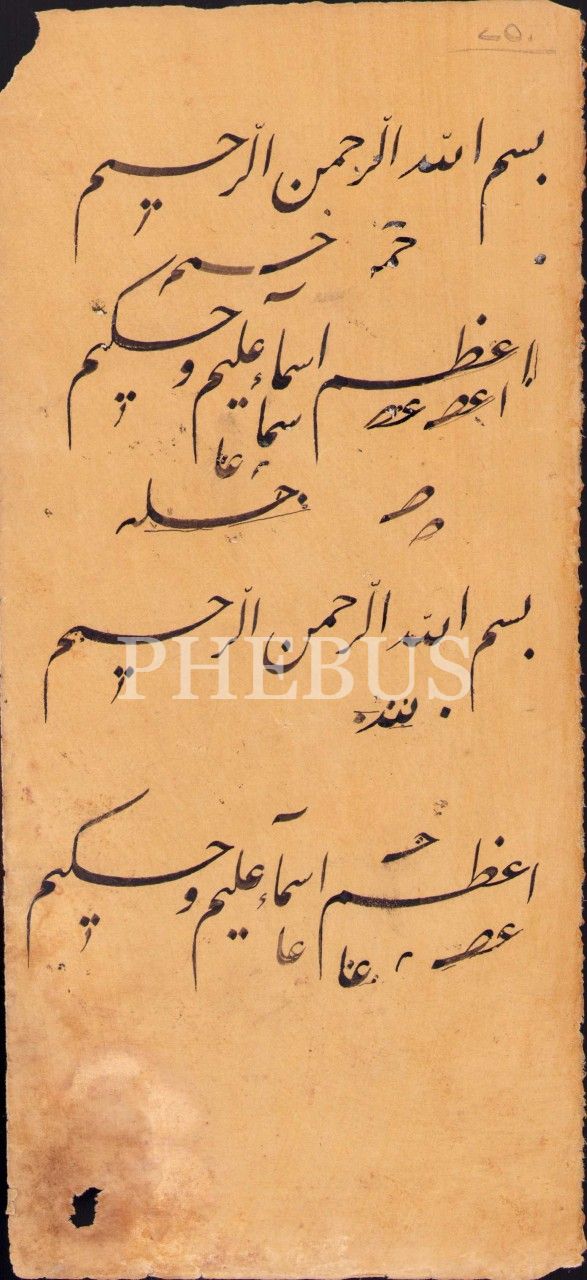 ٢٥٠
بسم الله الرّحمن الرّحیم
اعظم اسمآء علیم و حکیم
اعصـ عصـ سما
عا
بسم الله الرّحمن الرّحیم
PHEBUS
اعظم اسمآء علیم و حکیم
عصـ عا عا